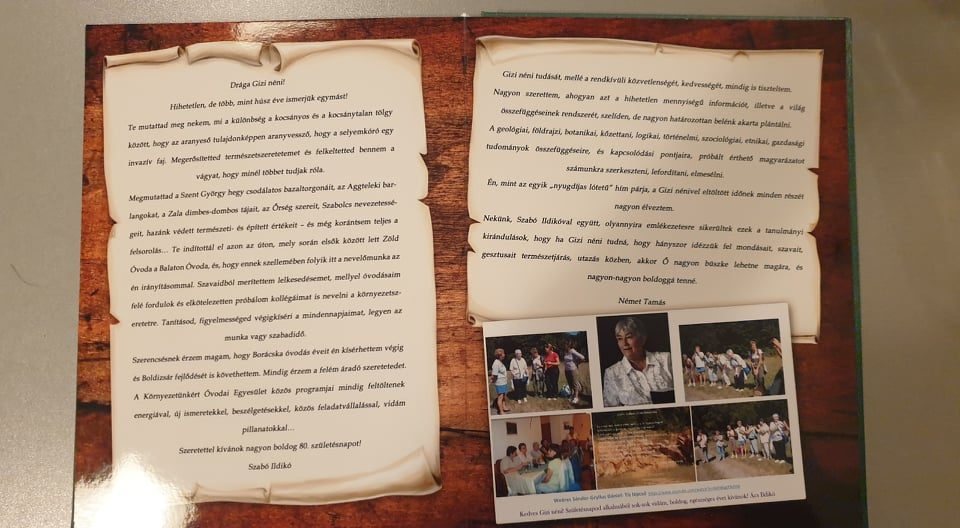 Drága Gizi néni!
Hihetetlen, de több, mint húsz éve ismerjük egymást!
Te mutattad meg nekem, mi a különbség a kocsányos és a kocsánytalan tölgy
között, hogy az aranyeső tulajdonképpen aranyvessző, hogy a selyemkóró egy
invazív faj. Megerősítetted természetszeretetemet és felkeltetted bennem a
vágyat, hogy minél többet tudjak róla.
Megmutattad a Szent György hegy csodálatos bazaltorgonáit, az Aggteleki bar-
langokat, a Zala dimbes-dombos tájait, az Őrség szereit, Szabolcs nevezetessé-
geit, hazánk védett természeti- és épített értékeit – és még korántsem teljes a
felsorolás… Te indítottál el azon az úton, mely során elsők között lett Zöld
Óvoda a Balaton Óvoda, és, hogy ennek szellemében folyik itt a nevelőmunka az
én irányításommal. Szavaidból merítettem lelkesedésemet, mellyel óvodásaim
felé fordulok és elkötelezetten próbálom kollégáimat is nevelni a környezetsz-
eretetre. Tanításod, figyelmességed végigkíséri a mindennapjaimat, legyen az
munka vagy szabadidő.
Szerencsésnek érzem magam, hogy Borácska óvodás éveit én kísérhettem végig
és Boldizsár fejlődését is követhettem. Mindig érzem a felém áradó szeretetedet.
A Környezetünkért Óvodai Egyesület közös programjai mindig feltöltenek
energiával, új ismeretekkel, beszélgetésekkel, közös feladatvállalással, vidám
pillanatokkal…
Szeretettel kívánok nagyon boldog 80. születésnapot!
Szabó Ildikó
Gizi néni tudását, mellé a rendkívüli közvetlenségét, kedvességét, mindig is tiszteltem.
Nagyon szerettem, ahogyan azt a hihetetlen mennyiségű információt, illetve a világ
összefüggéseinek rendszerét, szelíden, de nagyon határozottan belénk akarta plántálni.
A geológiai, földrajzi, botanikai, kőzettani, logikai, történelmi, szociológiai, etnikai, gazdasági
tudományok összefüggéseire, és kapcsolódási pontjaira, próbált érthető magyarázatot
számunkra szerkeszteni, lefordítani, elmesélni.
Én, mint az egyik „nyugdíjas lótetű” hím párja, a Gizi nénivel eltöltött időnek minden részét
nagyon élveztem.
Nekünk, Szabó Ildikóval együtt, olyannyira emlékezetesre sikerültek ezek a tanulmányi
kirándulások, hogy ha Gizi néni tudná, hogy hányszor idézzük fel mondásait, szavait,
gesztusait természetjárás, utazás közben, akkor Ő nagyon büszke lehetne magára, és
nagyon-nagyon boldoggá tenné.
Német Tamás
Weöres Sándor-Gryllus Dániel: Tíz lépcső
Kedves Gizi néni! Születésnapod alkalmából sok-sok vidám, boldog, egészséges évet kívánok! Ács Ildikó